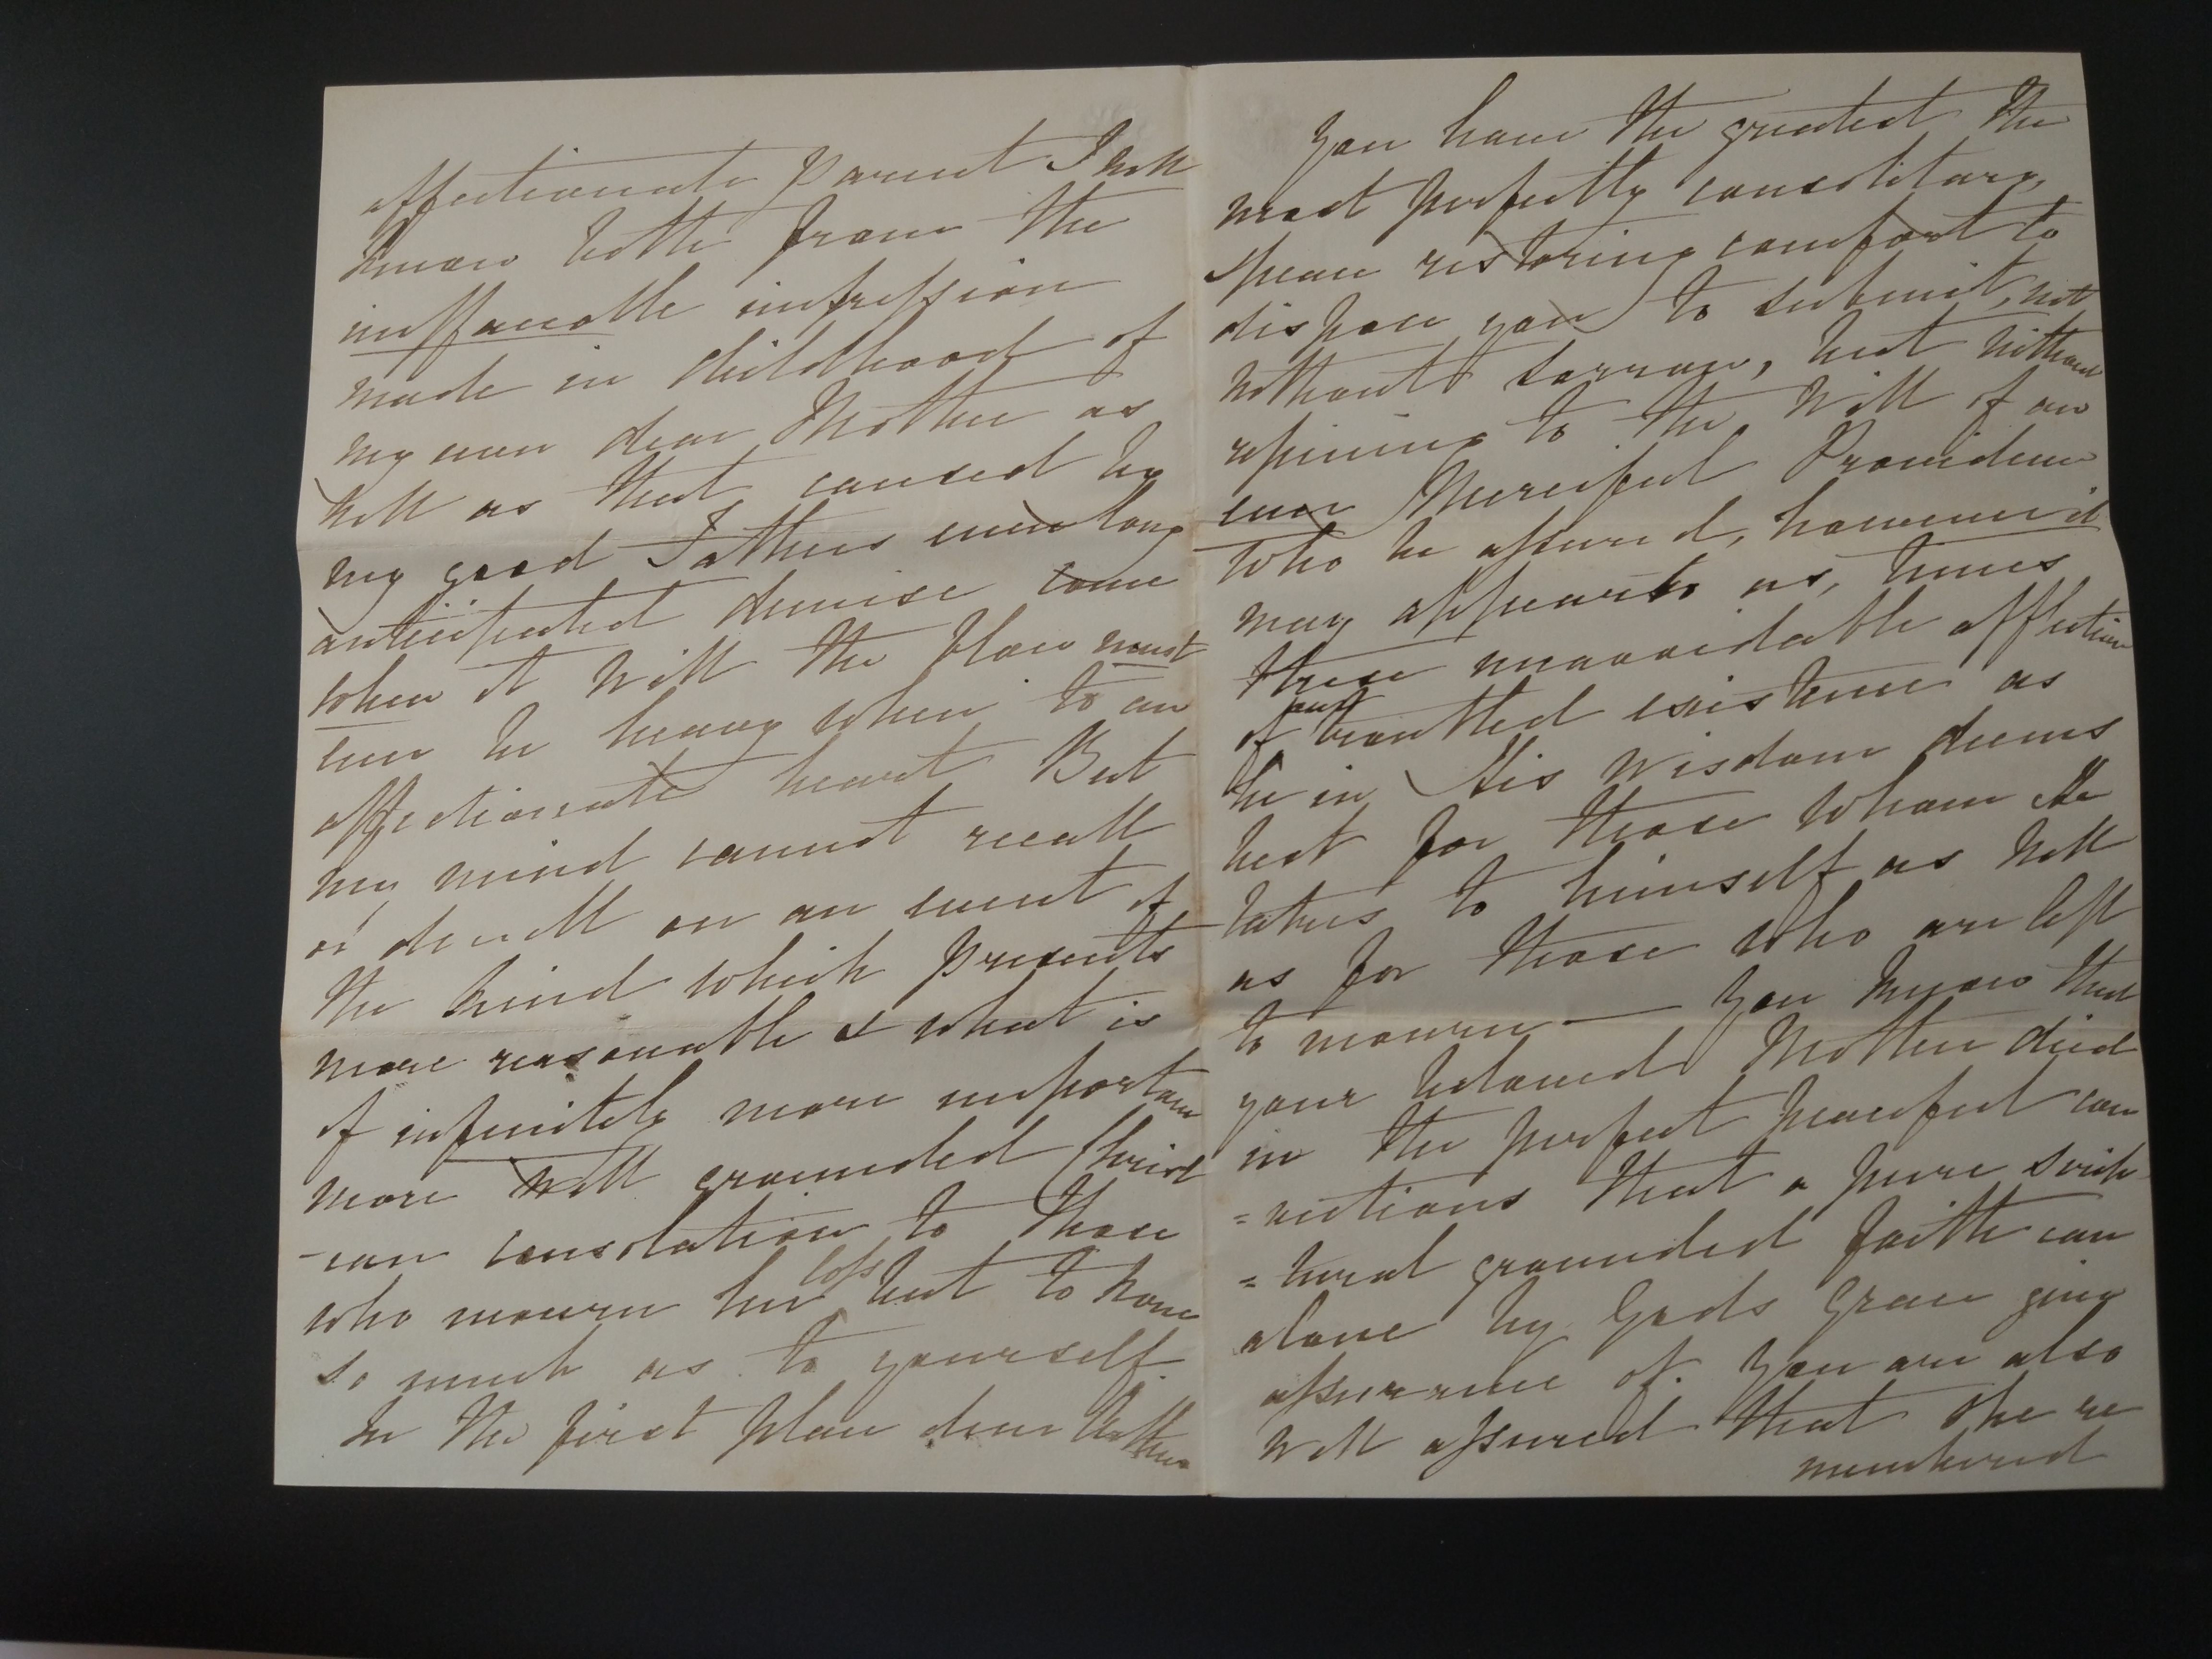 affectionate Parent I well
know both from the
ineffaceable impression
made in childhood of
my own dear Mother as
well as that caused by
my good Fathers even long
anticipated demise come
when it will the blow must
ever be heavy when to an
affectionate heart But
my mind cannot recall
or dwell on an event of
the kind which presents
more reasonable & what is
of infinitely more importance
more well grounded Christ
-ian consolation to those
who mourn her loss but to none
so much as to yourself.
In the first place dear
You have the greatest the
most perfectly consolitary,
peace restoring comfort to
dispose you to submit, not
without sorrow, but without
repining to the Will of an
ever Merciful Providence
who be assured, however it
may appear to us, times
these unavoidable afflictions
of our existence as
he in His Wisdom deems
best for those whom He
takes to himself as well
as for those who are left
to mourn — You know that
your beloved Mother died
in the perfect peaceful con
=victions that a pure scrip
=tural grounded faith can
alone by Gods Grace give
assurance of. You are also
well assured that she re
membered